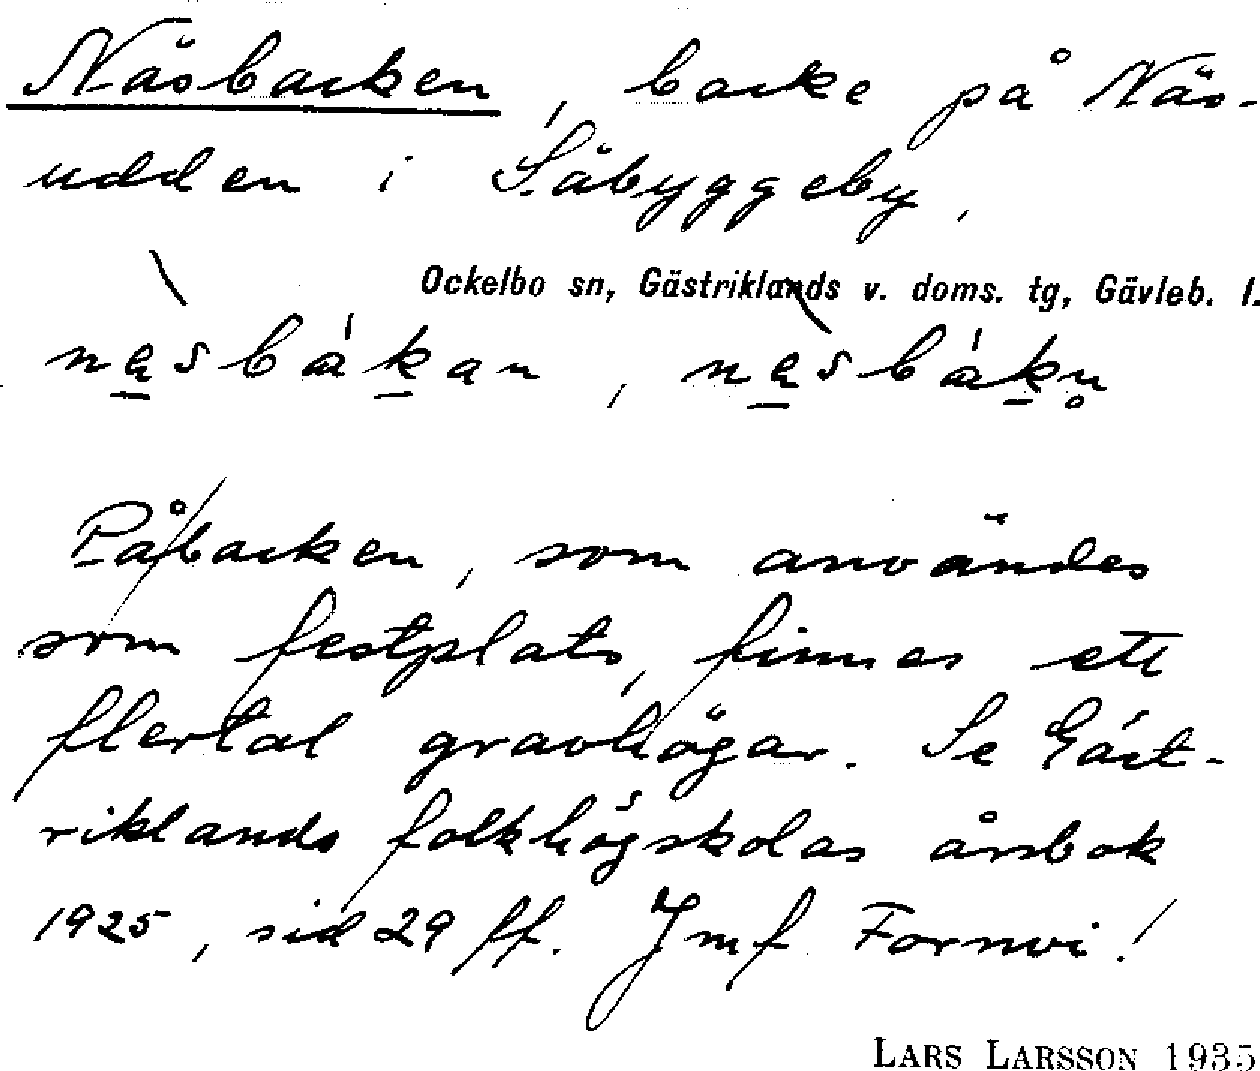 Näsbacken, backe på Näs-
udden i Säbyggeby.
Ockelbo sn, Gästriklands v. doms. tg, Gävleb. l.
näsbákan, näsbákn̥
På backen, som användes
som festplats, finnes ett
flertal gravhögar. Se Gäst-
riklands folkhögskolas årsbok
1925, sid 29 ff. Jmf Fornvi!
LARS LARSSON 1935